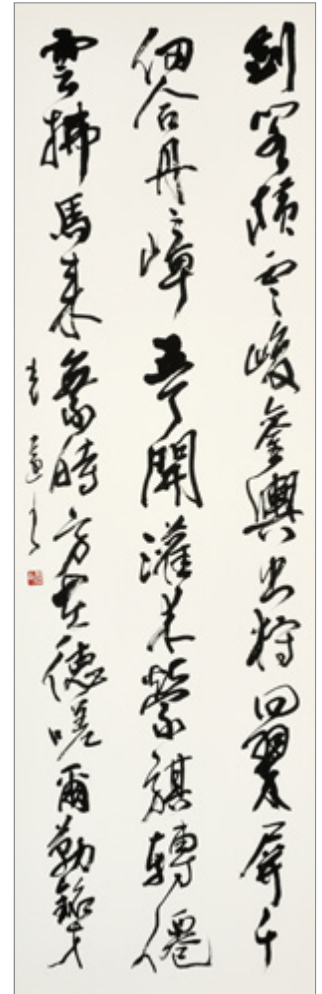 劍閣橫雲峻鑾輿出狩回翠屏千
仞合丹嶂五丁開灌木縈旗轉僊
雲拂馬來乘時方在德嗟爾勒銘才